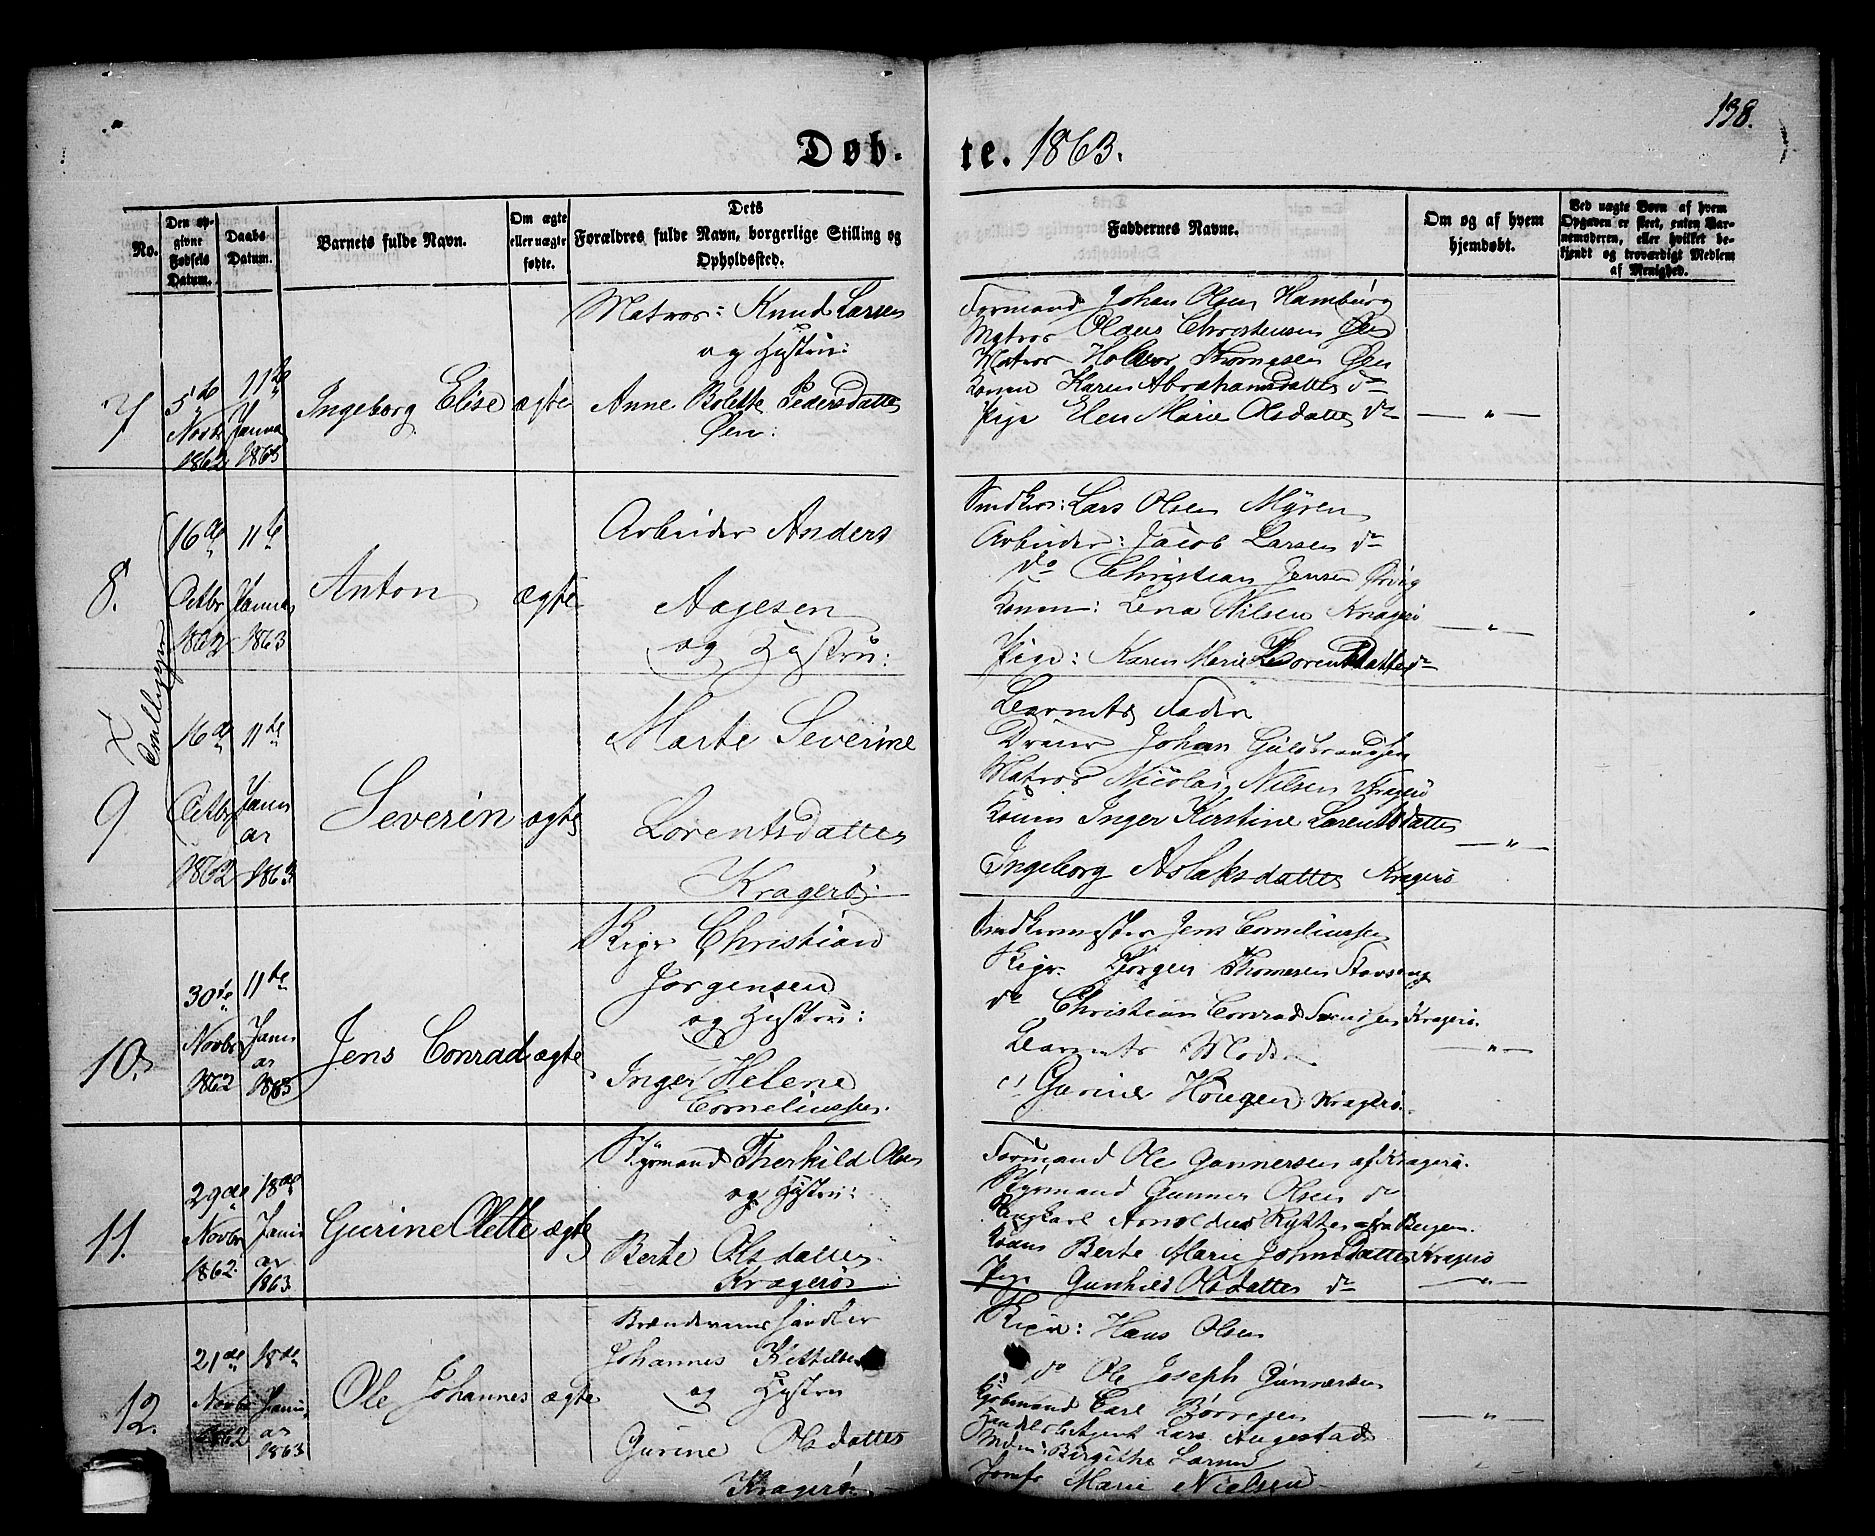 138.
Døb-
te. 1863.
No.
Den op-
givne
Fødsels
Datum.
Daabs
Datum.
Barnets fulde Navn.
Om ægte
eller uægte
fødte.
Dets
Forældres fulde Navn, borgerlige Stilling og
Opholdssted.
Faddernes Navne.
Om og af hvem
hjemdøbt.
Ved uægte Børn af hvem
Opgaven er skeet, enten Bar-
nemoderen, eller hvilket be-
kjendt og troværdigt Medlem
af Menighed.
7
5te
Novbr
1862
11te
Janua
1863
Ingeborg Elise
ægte
Matros: Knud Larsen
og Hustru:
Anne Bolette Pedersdatter
Øen:
Formand Johan Olsen Hamburg
Matros Olaus Christensen Øen
Matros Holleor Thomesen Øen
Konen Karen Abrahamsdatter do
Pige Elen Marie Olsdatter do
— " —
8.
16de
Octbr
1862
11te
Januar
1863
Anton
ægte
Arbeider Anders
Aagesen
og Hustru:
Smedkos: Lars Olsen Myren
Arbeider: Jacob Larsen do
do Christian Jensen
Konen: Lena Nilsen Kragerø
Pige: Karen Marie Lorentsdatter do
— " —
X Tvillinger
9
16de
Octbr
1862
11te
Janu
ar
1863
Severin
ægte
Marte Severine
Lorentsdatter
Kragerø:
Barnets Fader
Dreier Johan Gulbrandsen
Matros Nicolai Nilsen Kragerø
Konen Inger Kirstine Larentsdatter
Ingeborg Aslaksdatter Kragerø
— " —
10.
30te
Novbr
1862
11te
Janu
ar
1863
Jens Conrad
ægte
Skipr Christian
Jørgensen
og Hustru:
Inger Helene
Corneliussen.
Smedkermester Jens Corneliussen
Skipr. Jørgen Thomesen Stavseng
do Christian Conrad Svendsen Kragerø.
Barnets Moder
Gurine Hougen Kragerø.
— " —
11.
29de
Novbr
1862.
18de
Janu
ar
1863
Gurine Olette
ægte
Styrmand Therkild Olsen
og Hustru:
Berte Olsdatter
Kragerø
Formand Ole Gunnersen af Kragerø.
Styrmand Gunner Olsen do
Ungkarl Arnoldus Rytter fra Bergen.
Konen Berte Marie Johnsdatter Kragerø
Pige Gunhild Olsdatter do
— " —
12.
21de
Novbr
1862
18de
Janu
ar
1863
Ole Johannes
ægte
Brændeviinshandler
Johannes Kittilsen
og Hustru
Gurine Olsdatter
Kragerø
Skipr: Hans Olsen
do Ole Joseph Gunnersen
Kjøbmand Carl Børresen
Handels Agent Lars Angestad
Mdm: Birgithe Larsen
Jomfr Marie Nielsen
— " —